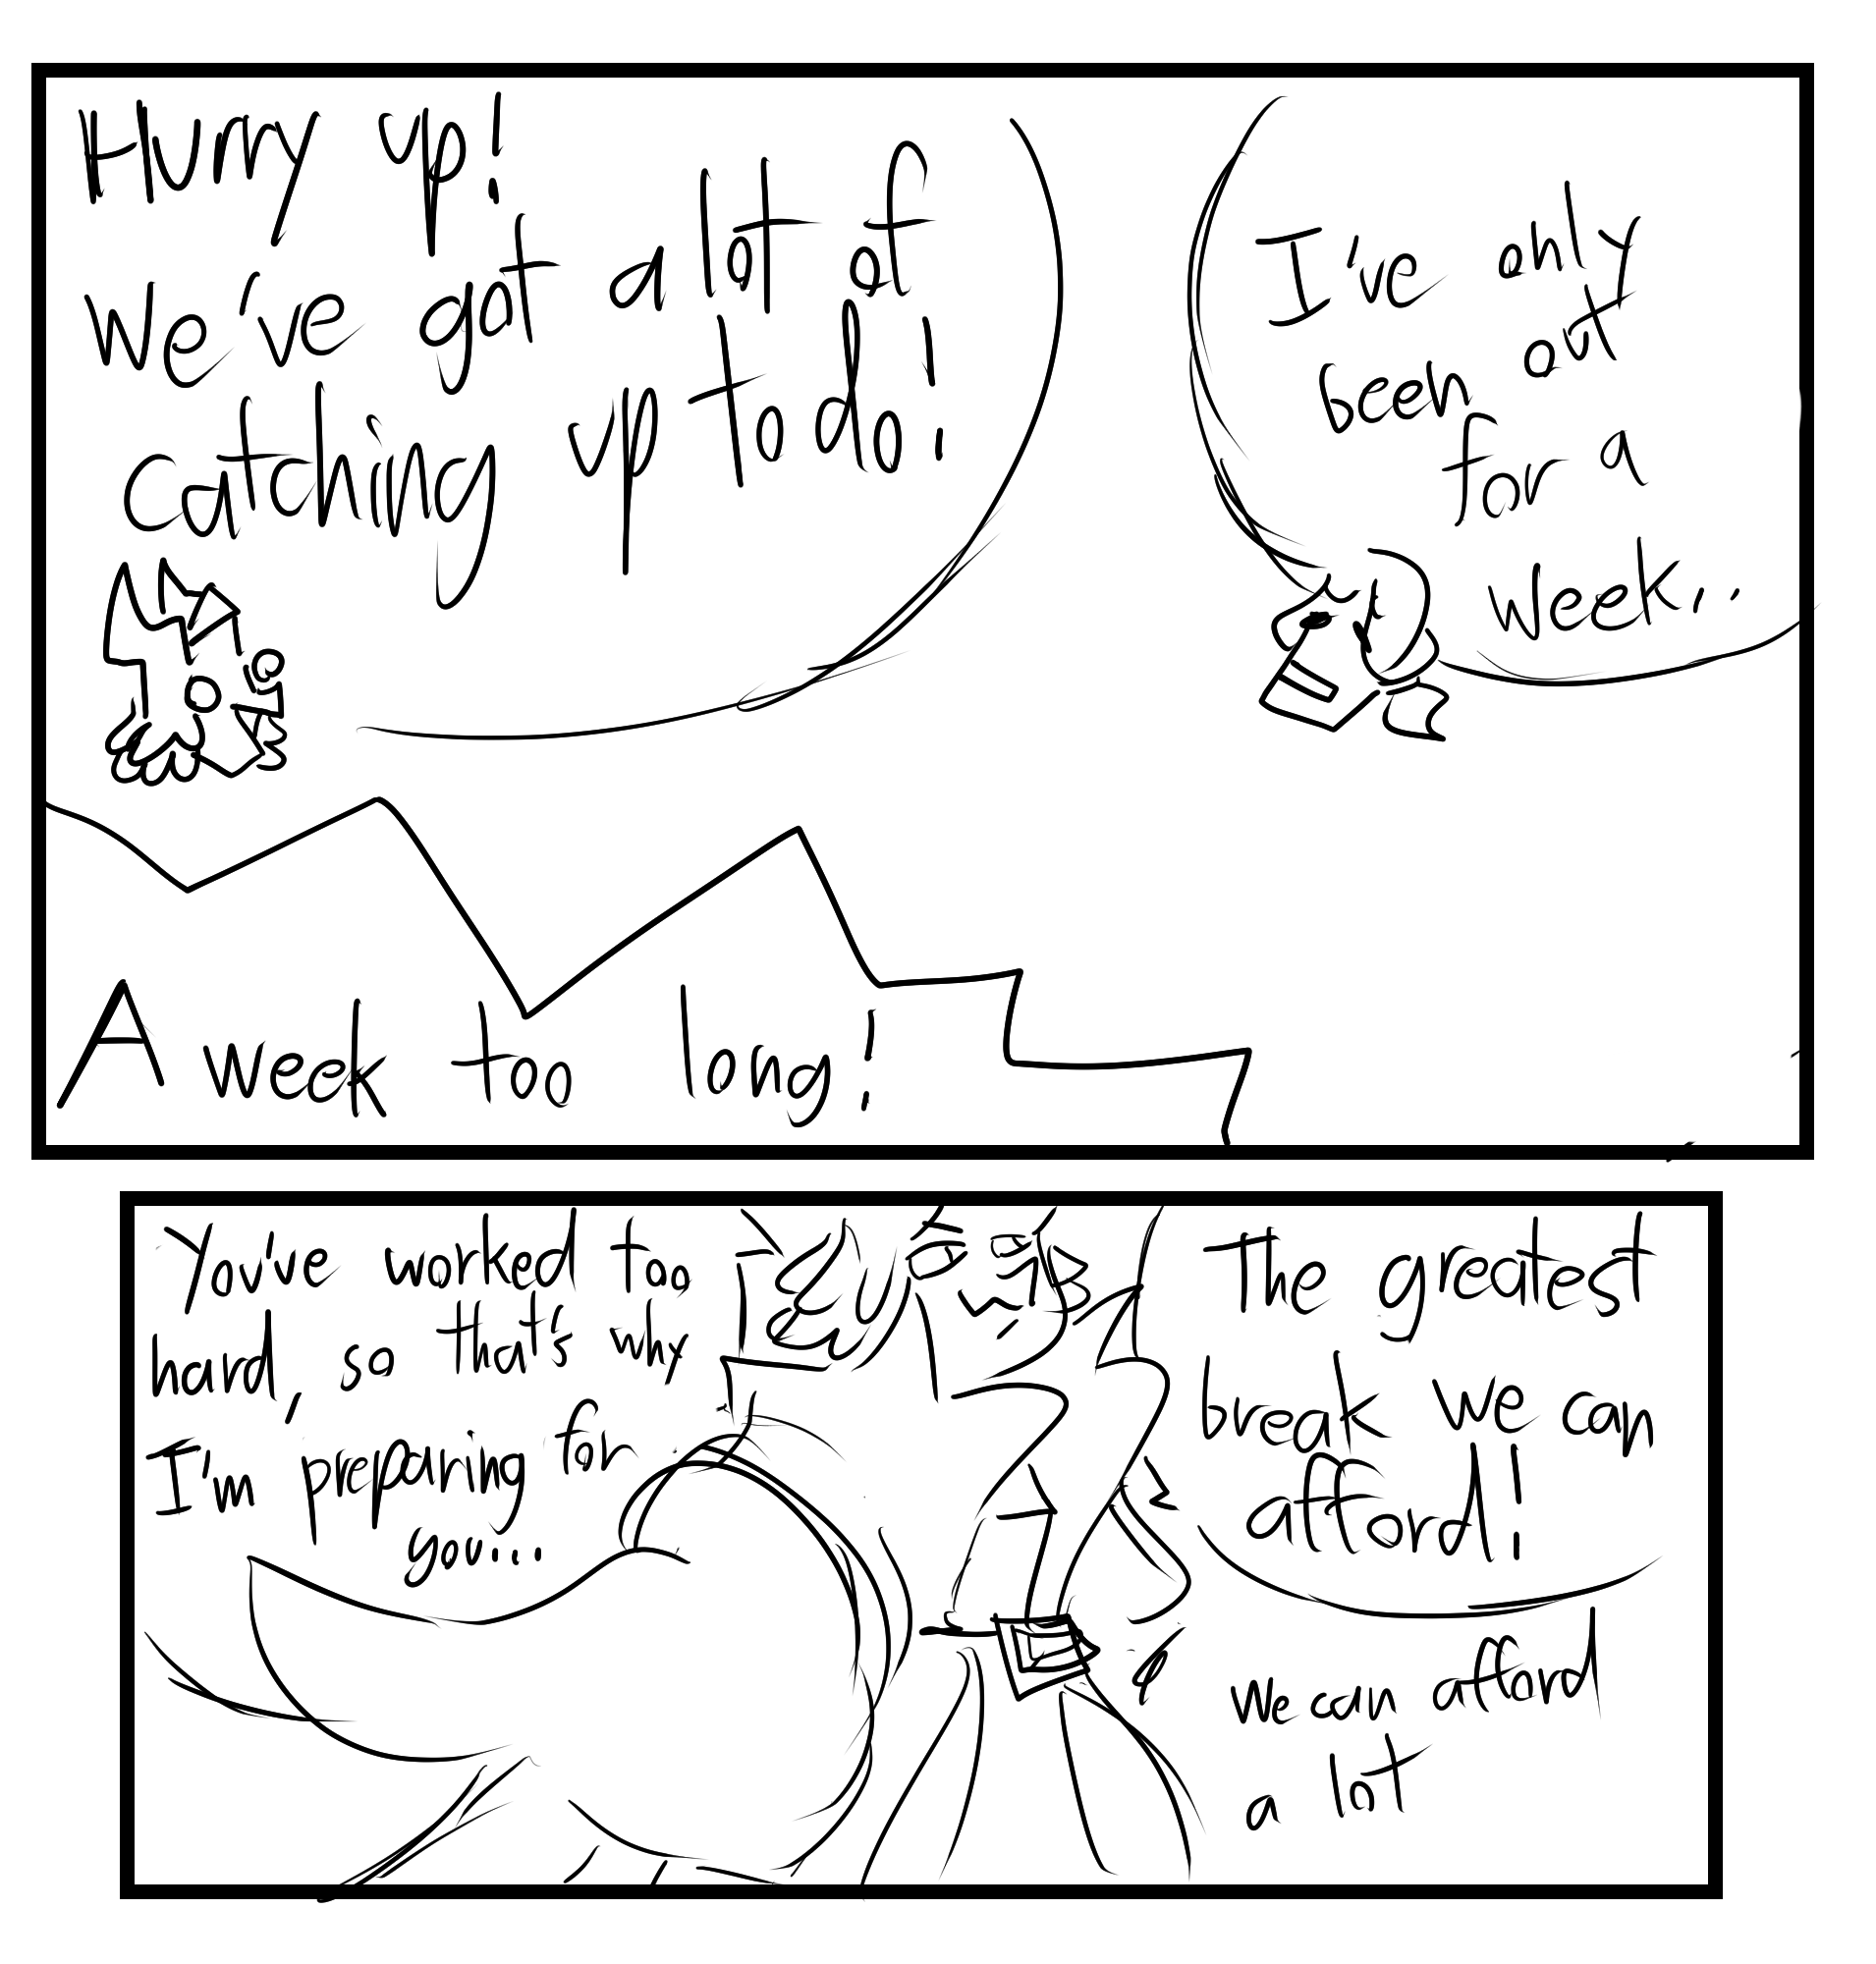 Hurry up!
We've got a lot of
catching up to do!
I've only
been out
for a
week...
A week too long!
You've worked too
hard, so that's why
I'm preparing for
you...
The greatest
break we can
afford!
We can afford
a lot